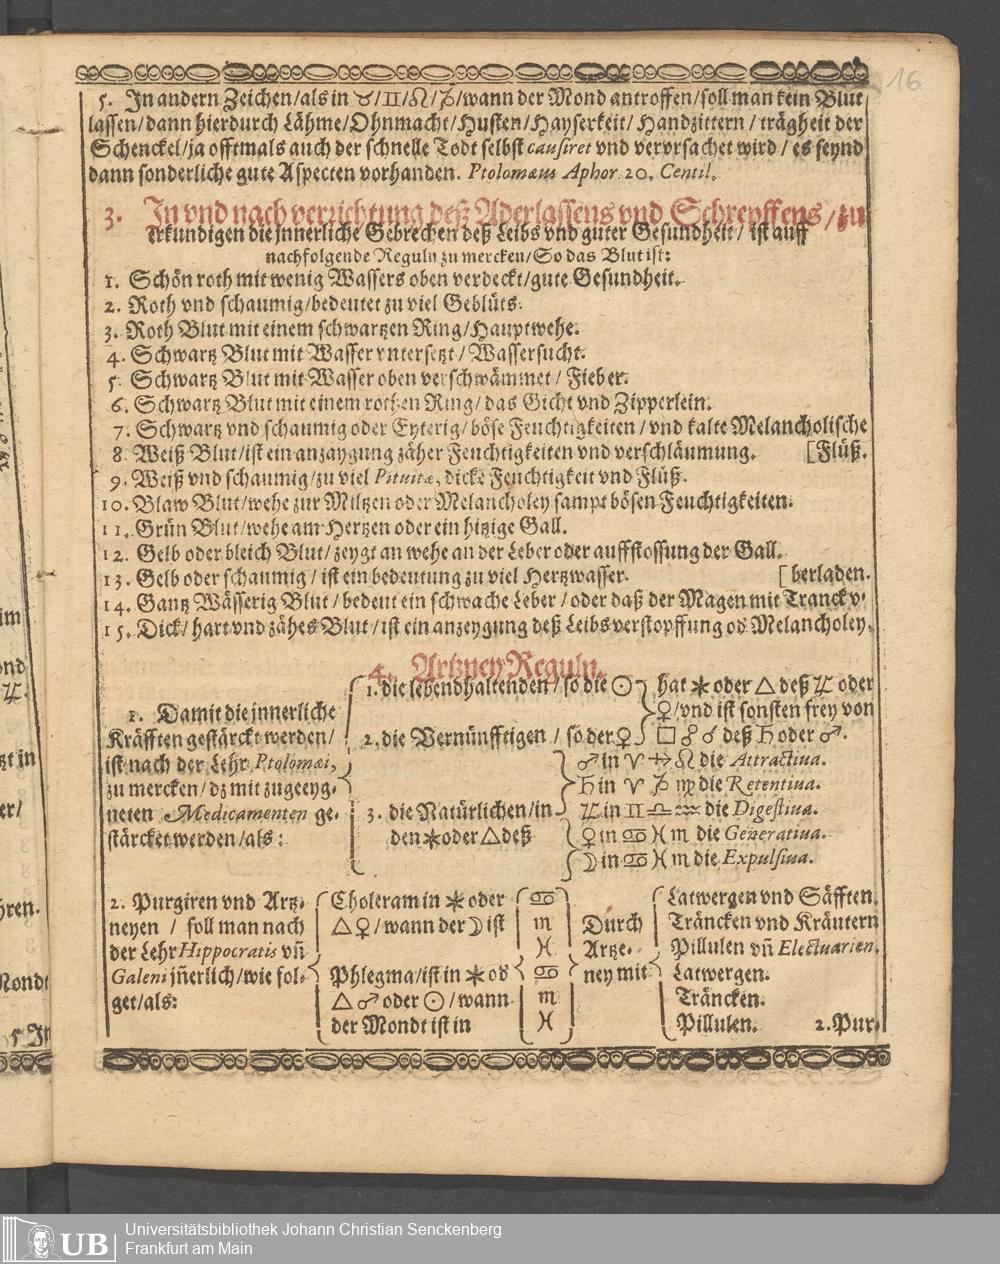 16
5. In andern Zeichen/als in ♉/♊/♌/♑/wann der Mond antroffen/soll man kein Blut
lassen/dann hierdurch Lähme/Ohnmacht/Husten/Hayserkeit/Handzittern/trägheit der
Schenckel/ja offtmals auch der schnelle Todt selbst causiret vnd vervrsachet wird/es seynd
dann sonderliche gute Aspecten vorhanden. Ptolomæus Aphor. 20. Centil.
3. In vnd nach verrichtung deß Aderlassens vnd Schrepffens/zu
erkundigen die jnnerliche Gebrechen deß Leibs vnd guter Gesundheit/ist auff
nachfolgende Reguln zu mercken/So das Blut ist:
1. Schön roth mit wenig Wassers oben verdeckt/gute Gesundheit.
2. Roth vnd schaumig/bedeutet zu viel Geblüts.
3. Roth Blut mit einem schwartzen Ring/Hauptwehe.
4. Schwartz Blut mit Wasser vntersetzt/Wassersucht.
5. Schwartz Blut mit Wasser oben verschwämmet/Fieber.
6. Schwartz Blut mit einem rothen Ring/das Gicht vnd Zipperlein.
7. Schwartz vnd schaumig oder Eyterig/böse Feuchtigkeiten/vnd kalte Melancholische
8. Weiß Blut/ist ein anzaygung zäher Feuchtigkeiten vnd verschläumung. [Flüß.
9. Weiß vnd schaumig/zu viel Pituitæ, dicke Feuchtigkeit vnd Flüß.
10. Blaw Blut/wehe zur Miltzen oder Melancholey sampt bösen Feuchtigkeiten.
11. Grün Blut/wehe am Hertzen oder ein hitzige Gall.
12. Gelb oder bleich Blut/zeygt an wehe an der Leber oder auffstossung der Gall.
13. Gelb oder schaumig/ist ein bedeutung zu viel Hertzwasser. [berladen.
14. Gantz Wässerig Blut/bedeut ein schwache Leber/oder daß der Magen mit Tranck v'
15. Dick/hart vnd zähes Blut/ist ein anzeygung deß Leibs verstopffung od' Melancholey.
4. Artzney Reguln.
1. Damit die jnnerliche
Kräfften gestärckt werden/
ist nach der Lehr Ptolomæi,
zu mercken/dz mit zugeeyg-
neten Medicamenten ge-
stärcket werden/als:
1. die lebendhaltenden/so die ☉ hat ⚹ oder △ deß ♃ oder
♀/vnd ist sonsten frey von
2. die Vernünfftigen/so der ☿ □ ☍ ☌ deß ♄ oder ♂.
♂ in ♈ ♐ ♌ die Attractiua.
♄ in ♈ ♑ ♍ die Retentiua.
3. die Natürlichen/in ♃ in ♊ ♎ ♒ die Digestiua.
den ⚹ oder △ deß ♀ in ♋ ♓ ♏ die Generatiua.
☽ in ♋ ♓ ♏ die Expulsiua.
2. Purgiren vnd Artz-
neyen / soll man nach
der Lehr Hippocratis vñ
Galeni jñerlich/wie fol-
get/als:
Choleram in ⚹ oder
△ ♀/wann der ☽ ist
Phlegma/ist in ⚹ od'
△ ♂ oder ☉/wann
der Mondt ist in
♋
♏
♓
♋
♏
♓
Durch
Artze-
ney mit
Latwergen vnd Säfften.
Träncken vnd Kräutern
Pillulen vñ Electuarien.
Latwergen.
Träncken.
Pillulen. 2. Pur-
UB
Universitätsbibliothek Johann Christian Senckenberg
Frankfurt am Main